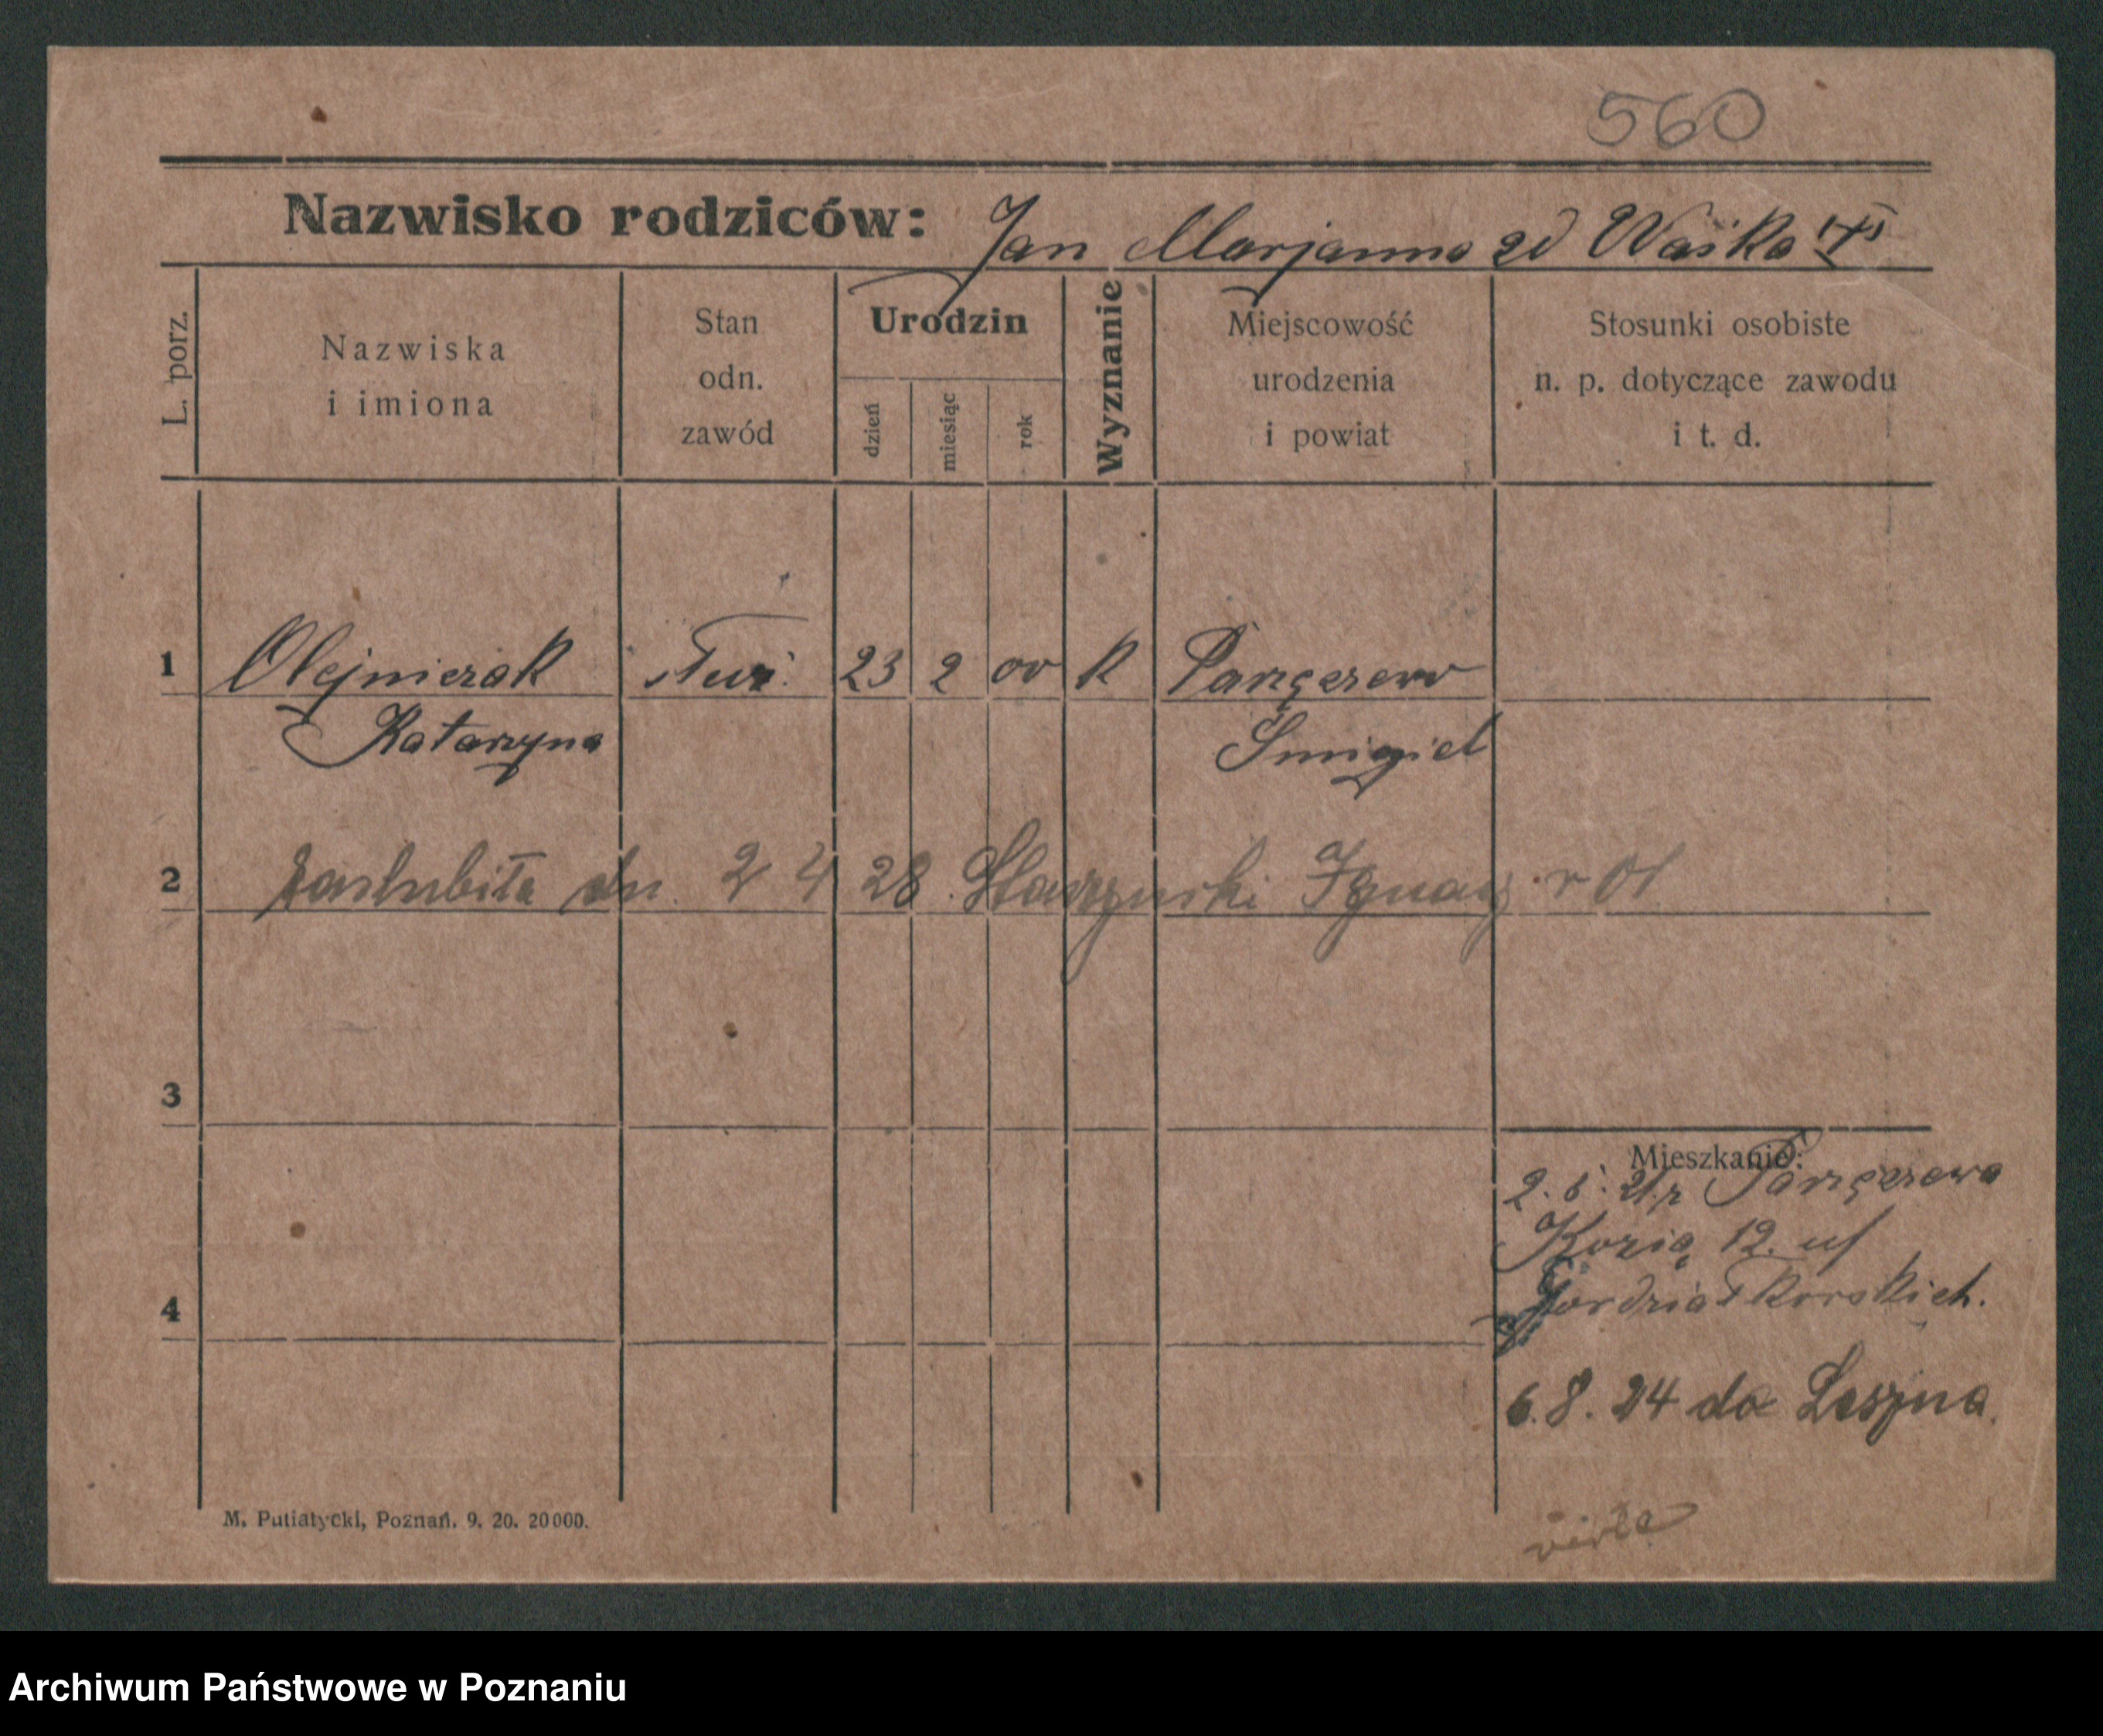 560
Nazwisko rodziców: Jan Marjanna zd Waśko
L. porz.
Nazwiska i imiona
Stan odn. zawód
Urodzin
dzień
miesiąc
rok
Wyznanie
Miejscowość urodzenia i powiat
Stosunki osobiste n. p. dotyczące zawodu i t. d.
1 Olejniczak służ. 23 2 00 k Parzęczewo
Katarzyna Śmigiel
2 zaślubiła dn. 2 4 28 Ignacy r 01
3
Mieszkanie:
Parzęczewa
Kozia 12. u/
4
6.8.24 do Leszna.
M. Putiatycki, Poznań. 9. 20. 20000.
Archiwum Państwowe w Poznaniu